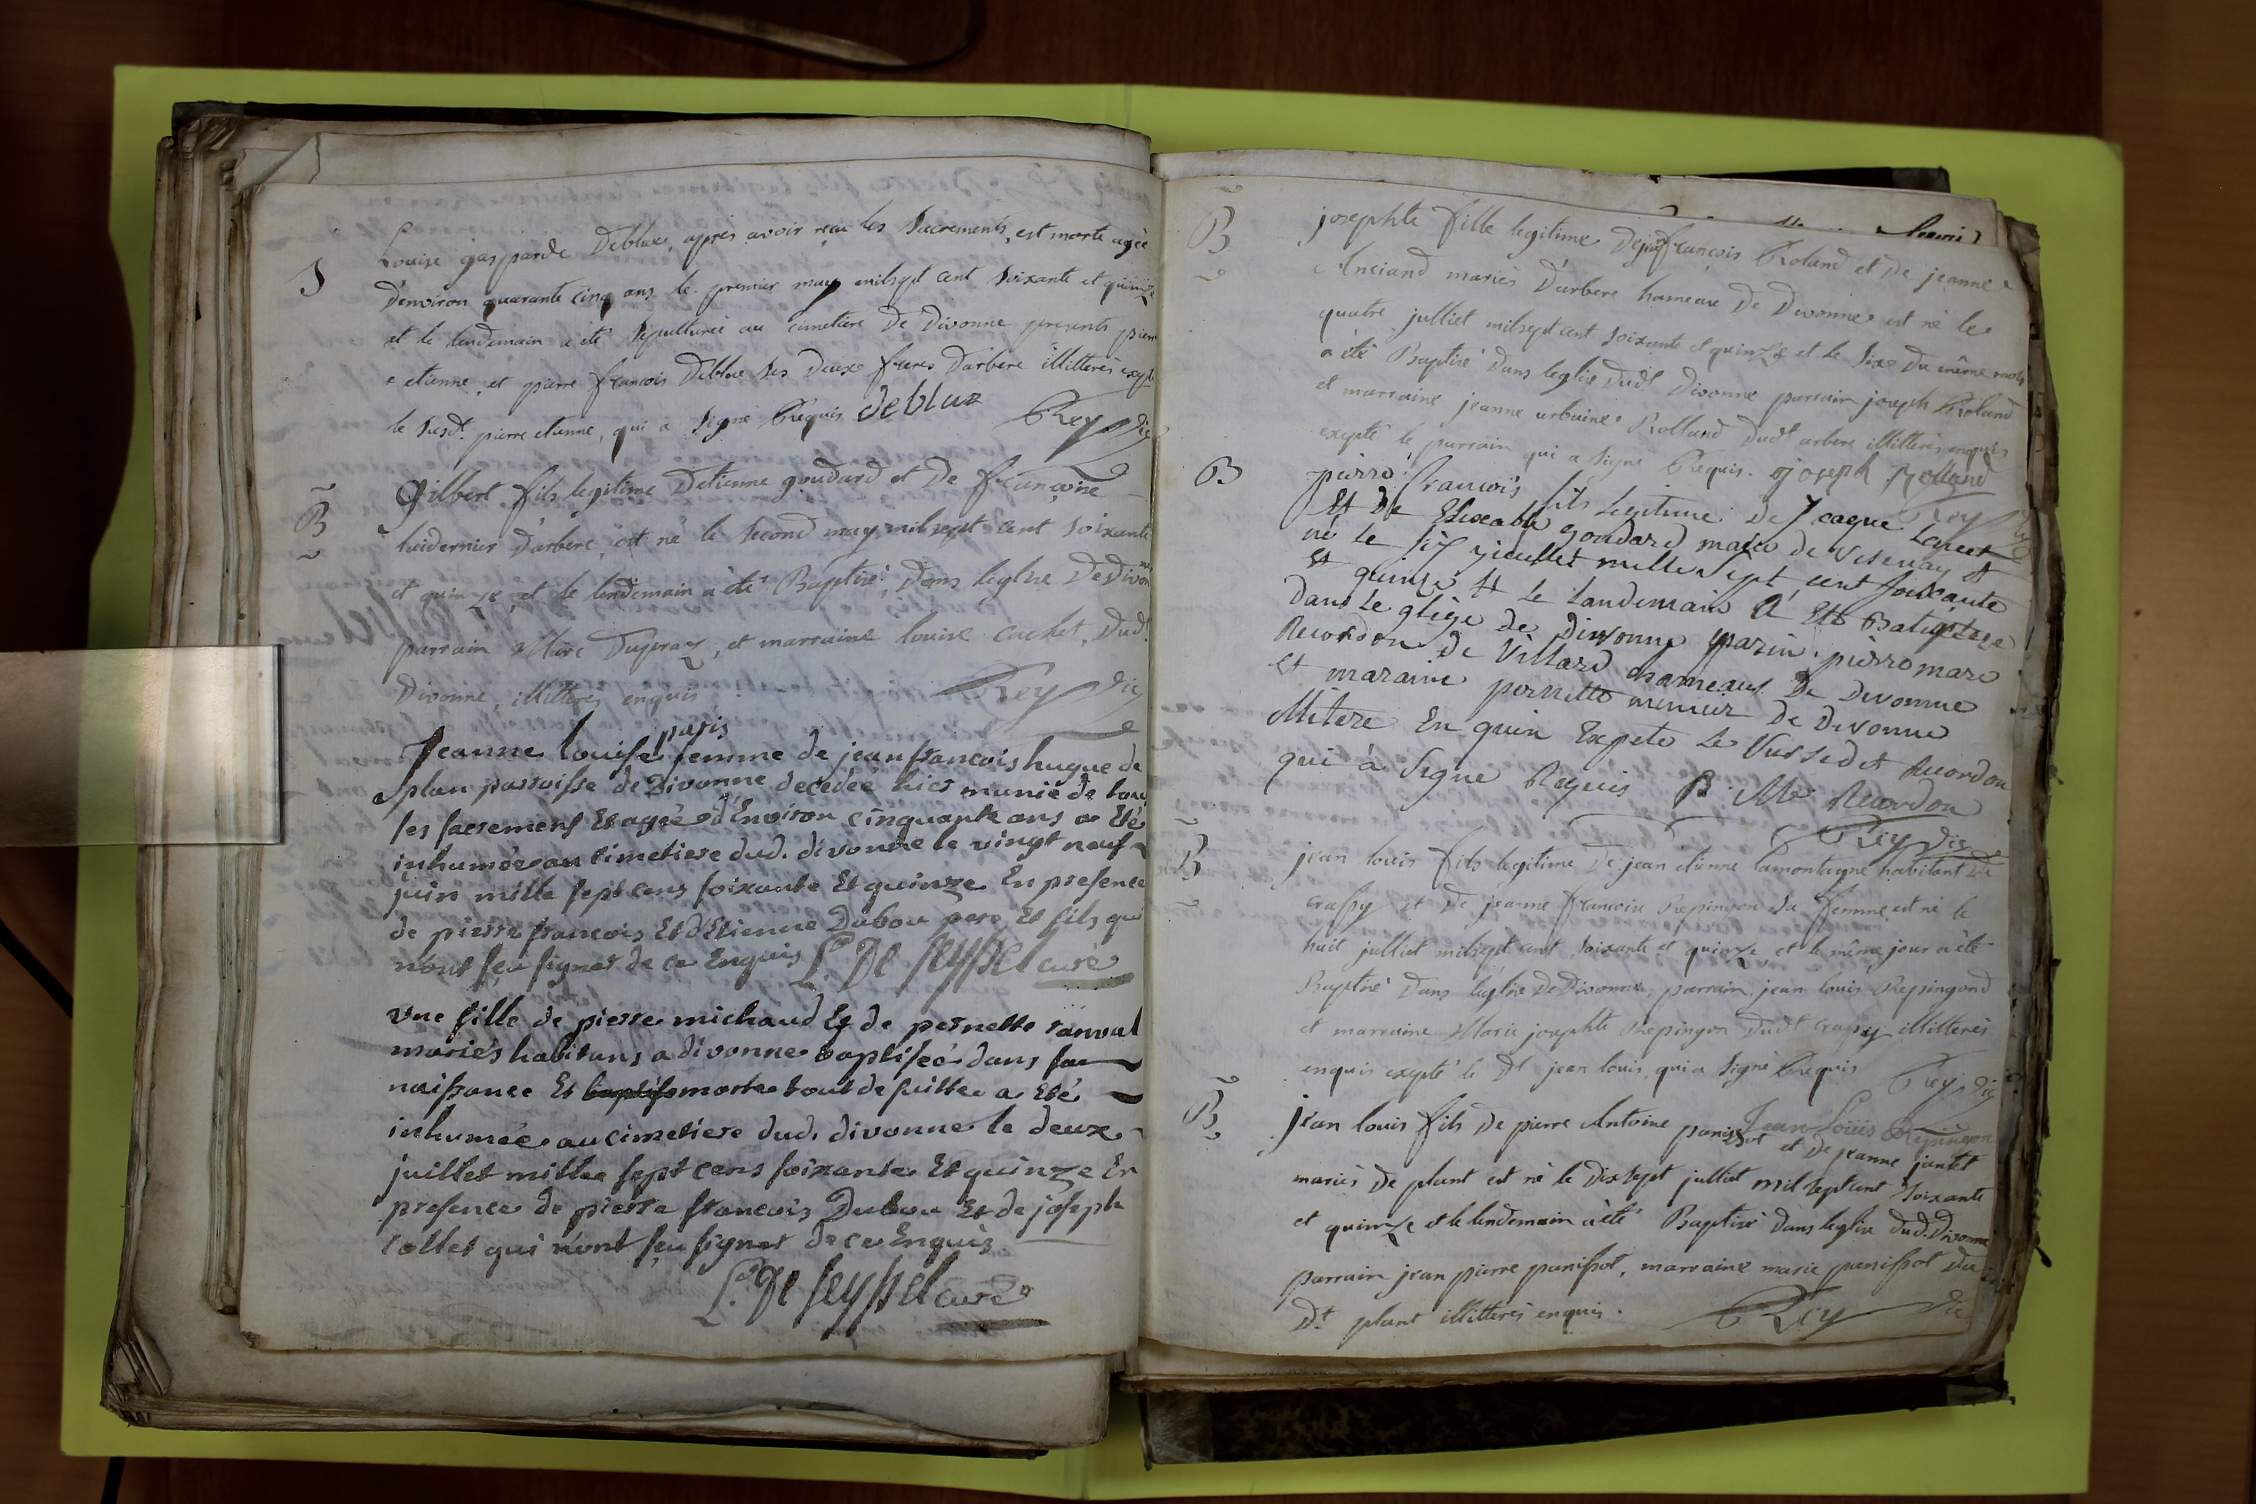 S
Louise gasparde Deblue, après avoir reçu les Sacrements, est morte agée
D'environ quarante cinq ans le premier may milsept cent soixante et quinze
et le lendemain a été sepulturée au cimetiere De Divonne presents pierre
etienne, et pierre françois Deblue ses Deux freres D'arbere illitterés exepté
le susdt. pierre etienne, qui a signé Requis deblue Rey vic
B
Gilbert fils legitime D'etienne goudard et De françoise
huidernier D'arbere, est né le second may milsept cent soixante
et quinze, et le lendemain a été Baptisé, Dans l'eglise De Divonne
parrain Marc Dupraz, et marraine louise cuchet, Dud.
Divonne, illitterés enquis Rey vic
paris
Jeanne louise femme de jean francois hugue de
plan parroisse de Divonne decedée hier munie de tous
les sacremens Et agée d'Environ cinquante ans a Eté
inhumée au cimetiere dud. divonne le vingt neuf
juin mille sept cens soixante Et quinze En presence
de pierre francois Et d'Etienne Dubou pere Et fils qui
n'ont sçu signer de ce Enquis L. De Seyssel curé
une fille de pierre michaud Et de pernette
mariés habitans a divonne baptisée dans sa
naissance Et baptise morte tout de suitte a Eté
inhumée au cimetiere dud. divonne le deux
juillet mille sept cens soixante Et quinze En
presence de pierre francois Dubou Et de joseph
collet qui n'ont sçu signer de ce Enquis
L. De Seyssel curé
B
josephte fille legitime De jean françois Roland et De jeanne
Anciand mariés D'arbere hameau De Divonne est né le
quatre julliet milsept cent soixante et quinze et le six Du même mois
a été Baptisé Dans l'eglise Dudt Divonne parrain joseph Roland
et marraine jeanne urbaine Rolland Dudt arbere illitterés enquis
exepté le parrain qui a signé Requis. joseph Rolland
Rey vic
B
pierre francois fils Legitime De Jcaque
Et De goudard de Vesenay Et
né Le six jieullet mille Sept cent soixante
Et quinze Et Le Landemain A Eté
Dans Le glièze de Divonne parin pierre marc
Recordon De Villard hameaux De Divonne
Et maraine pernette De Divonne
illitere En quin Expete Le Recordon
qui à Signé Requis P. Mc Recordon
Rey vic
B
jean louis fils legitime De jean etienne lamontagne habitant De
crassy et De jeanne francoise Repingon sa femme est né le
huit julliet milsept cent soixante et quinze, et le même jour a été
Baptisé Dans l'eglise De Divonne, parrain jean louis Repingond
et marraine Marie josephte Repingon Dudt crassy illitterés
enquis exepté le Dt jean louis qui a signé Requis Rey vic
Jean Louis Repingon
B
jean louis fils De pierre Antoine panissot et De jeanne jantet
mariés De plant est né le Dixsept julliet milseptcent soixante
et quinze et le lendemain a été Baptisé Dans l'eglise Dud. Divonne
parrain jean pierre panissot, marraine marie panissot Du
Dt plant illitterés enquis. Rey vic